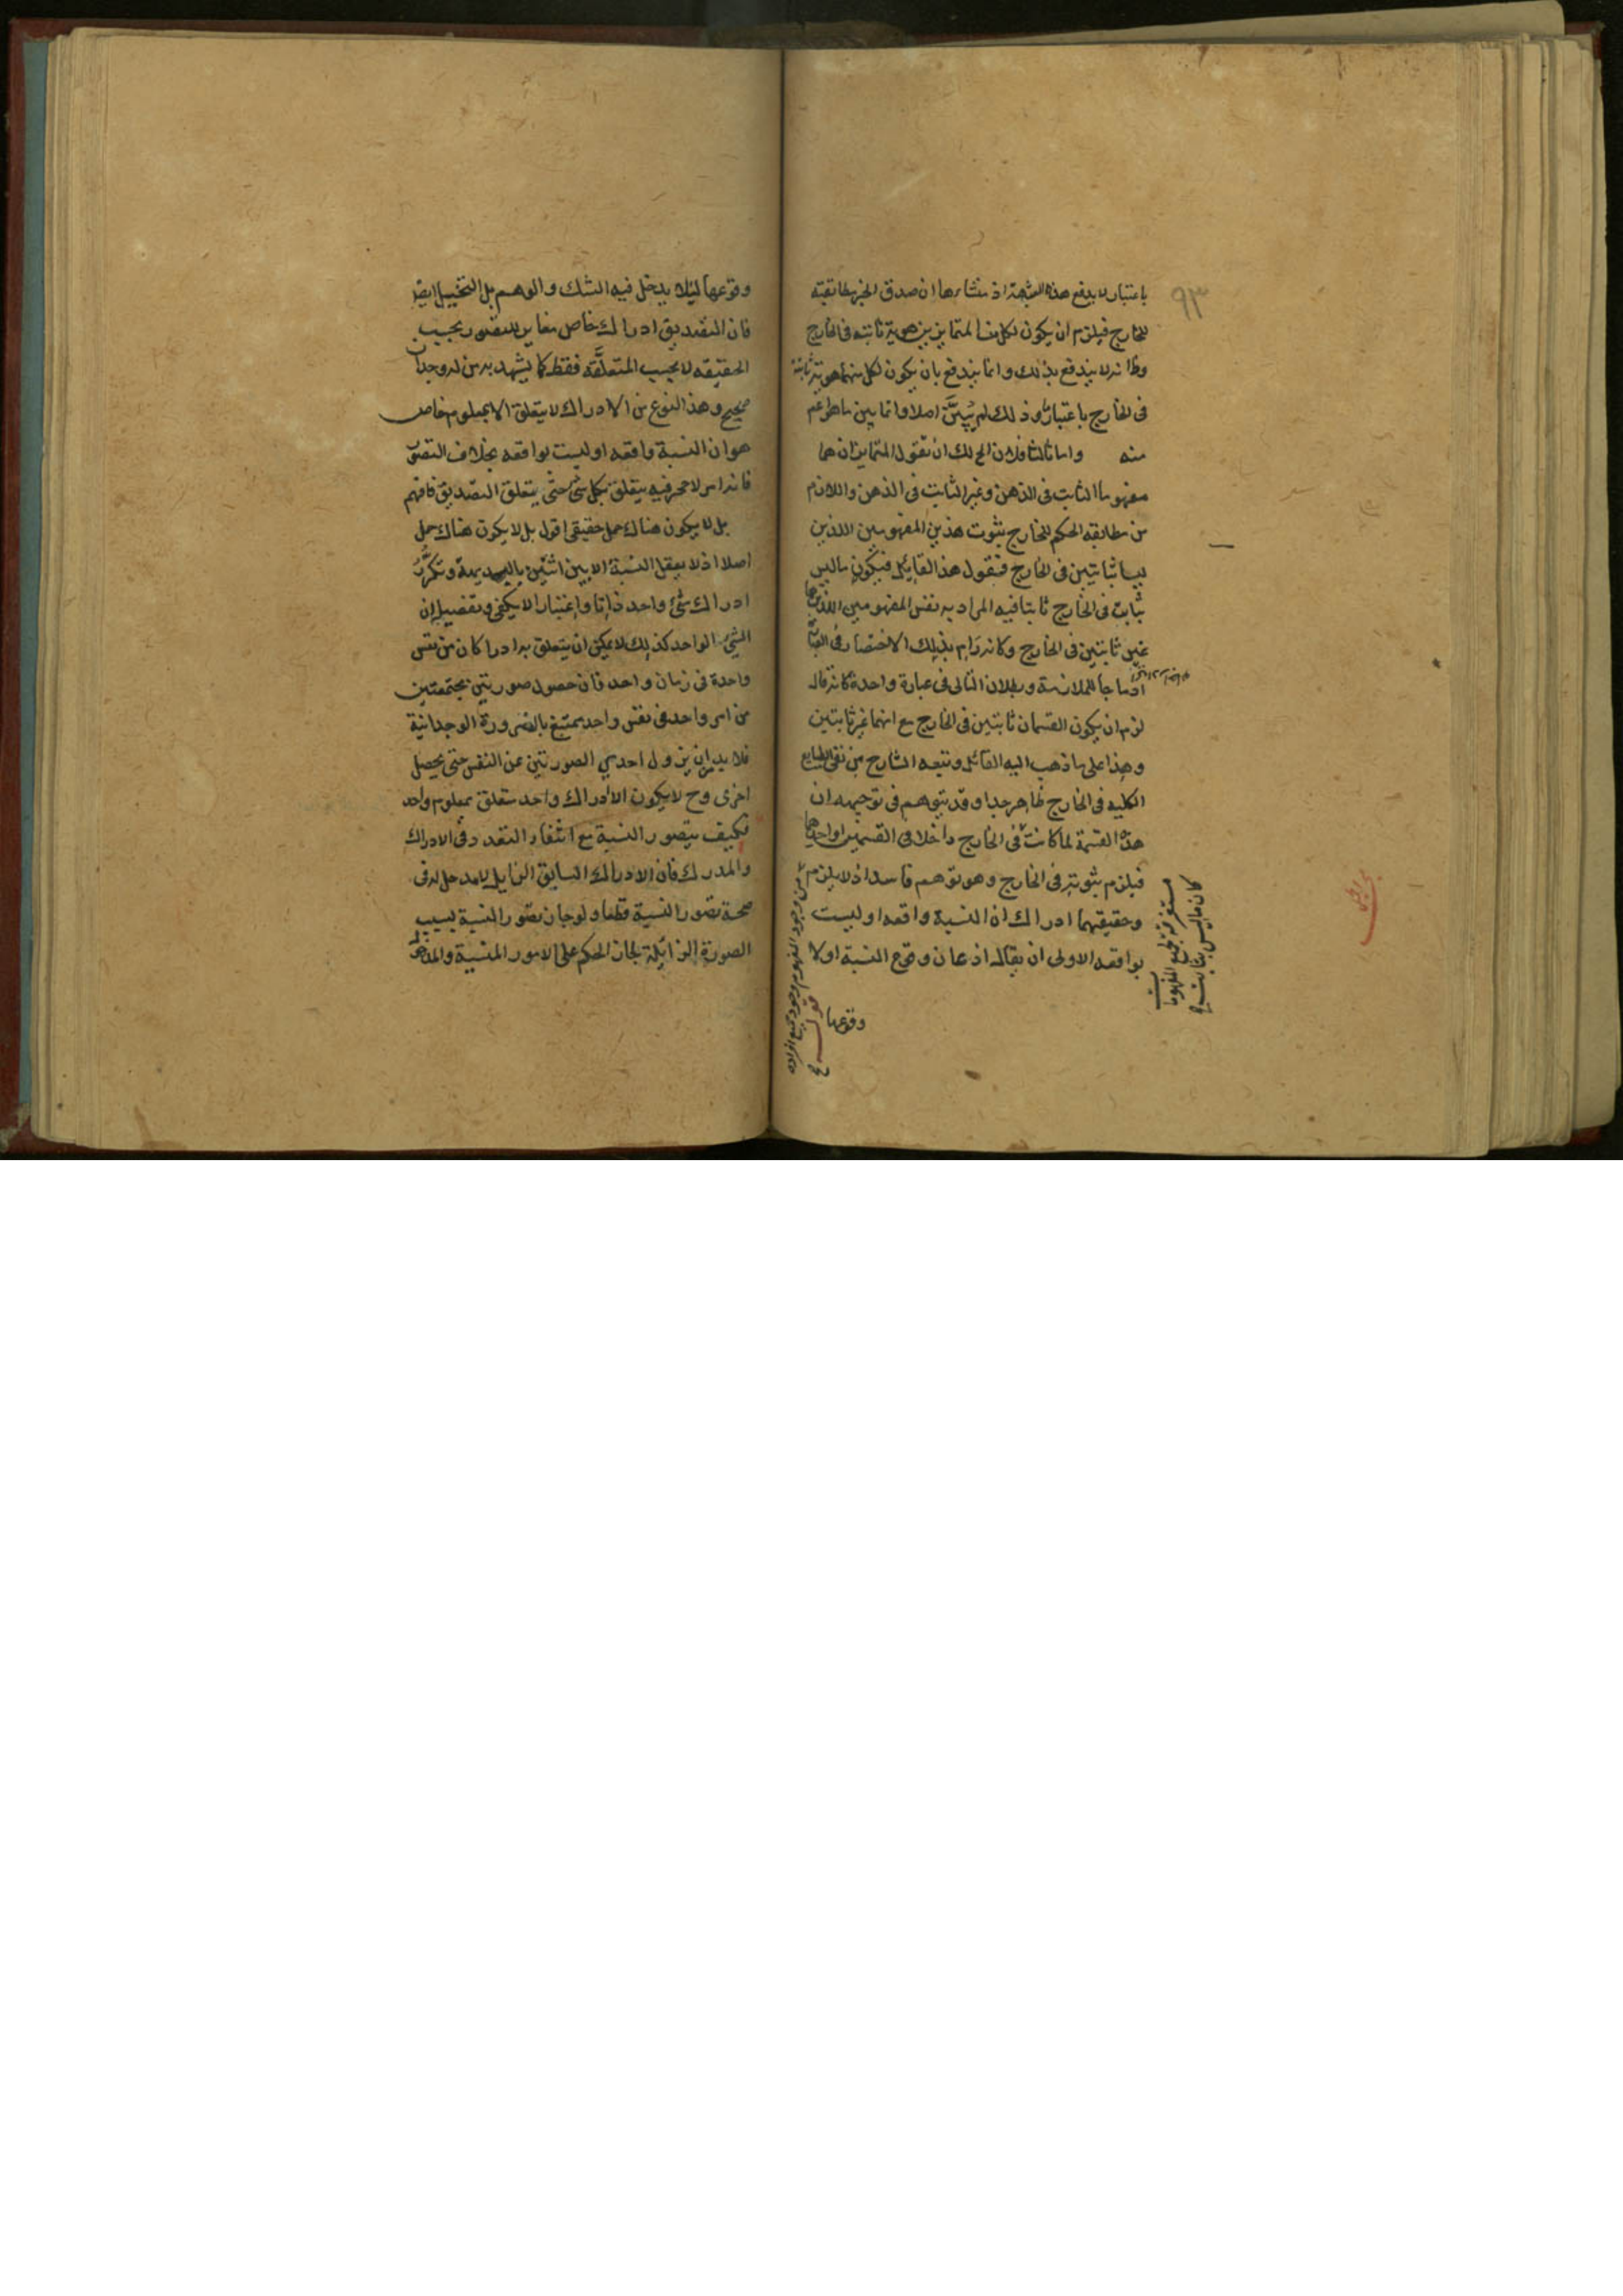 ٩٣
باعتبار لا يدفع هذه الشبهة اذ منشاءها ان صدق الخبر مطابقته
للخارج فيلزم ان يكون لكل من المتمايزين هوية ثابتة فى الخارج
وظ انه لا يندفع بذلك وانما يندفع بان يكون لكل منهما هوية ثابتة
فى الخارج باعتبار وذلك لم يتبيّن اصلا وانما يبين ما هو اعم
منه واما ثالثا فلان لك ان تقول المتمايزان هما
مفهوما الثابت فى الذهن وغير الثابت فى الذهن واللازم
من مطابقه الحكم للخارج ثبوت هذين المفهومين اللذين
ليسا ثابتين فى الخارج فنقول هذا القائل فيكون ما ليس
بثابت فى الخارج ثابتا فيه المراد به نفس المفهومين اللذين هما
غير ثابتين فى الخارج وكانه رام بذلك الاختصار فى
ادماجا للملازمة وبطلان التالى فى عبارة واحدة كانه قال
لزم ان يكون القسمان ثابتين فى الخارج مع انهما غير ثابتين
وهذا على ما ذهب اليه القائل وتبعه الشارح من نفى الطبايع
الكليه فى الخارج ظاهر جدا وقد يتوهم فى توجيهه ان
هذه القسمة لما كانت فى الخارج داخلا فى القسمين او احدهما
فيلزم ثبوته فى الخارج وهو توهم فاسد اذ لا يلزم
من وجود المفهوم وجود جميع افراده
كان ما ليس بثابت فى
مستغرقة لجميع المفهومات
قوله
وحقيقتهما ادراك ان النسبة واقعه او ليست
بواقعه الاولى ان يقال اذعان وقوع النسبة او لا
وقوعها
وقوعها ليلا يدخل فيه الشك والوهم بل التخييل ايضا
فان التصديق ادراك خاص مغاير للتصور بحسب
الحقيقه لا بحسب المتعلَّقه فقط كما يشهد به من له وجدان
صحيح وهذا النوع من الادراك لا يتعلق الا بمعلوم خاص
هو ان النسبة واقعه او ليست بواقعه بخلاف التصور
فانه امر لا حجر فيه يتعلق بكل شئ حتى يتعلق التصديق فافهم
بل لا يكون هناك حمل حقيقى اقول بل لا يكون هناك حمل
اصلا اذ لا يعقل النسبة الا بين اثنين بالبديهة وتكرّر
ادراك شئ واحد ذاتا واعتبارا لا يكفى وتفصيله ان
الشئ الواحد كذلك لا يمكن ان يتعلق به ادراكان من نفس
واحدة فى زمان واحد فان حصول صورتين مجتمعتين
من امر واحد فى نفس واحد يمتنع بالضرورة الوجدانية
فلا بد ان يزول احدى الصورتين عن النفس حتى يحصل
اخرى وح لا يكون الا ادراك واحد متعلق بمعلوم واحد
فكيف يتصور النسبة مع انتفاء التعدد فى الادراك
والمدرك فان الادراك السابق الزايل لا مدخل له فى
صحة تصور النسبة قطعا ولو جاز تصور النسبة بسبب
الصورة الزائلة لجاز الحكم على الامور المنسية والمذهول